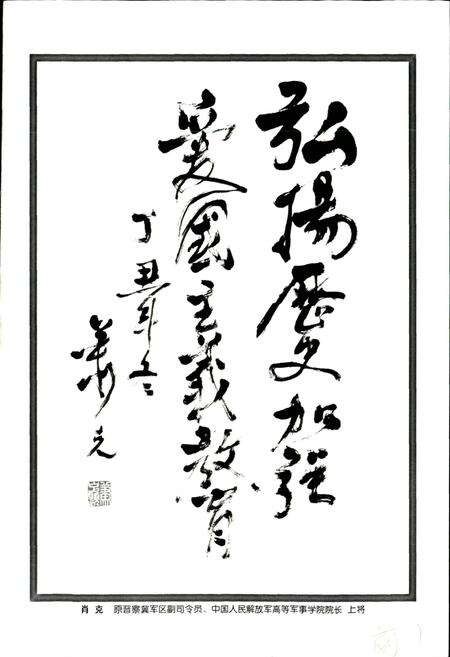 弘揚歷史加强
愛國主義教育
丁丑年冬
萧克
肖 克 原晋察冀军区副司令员、中国人民解放军高等军事学院院长 上将